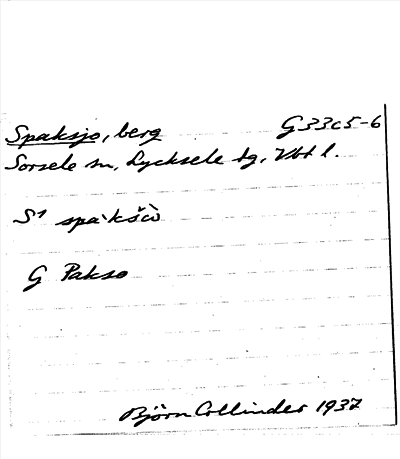 Spaksjo, berg G33c5-6
Sorsele sn, Lycksele tg, Vbt l.
S1 spa`kšò
G Pakso
Björn Collinder 1937